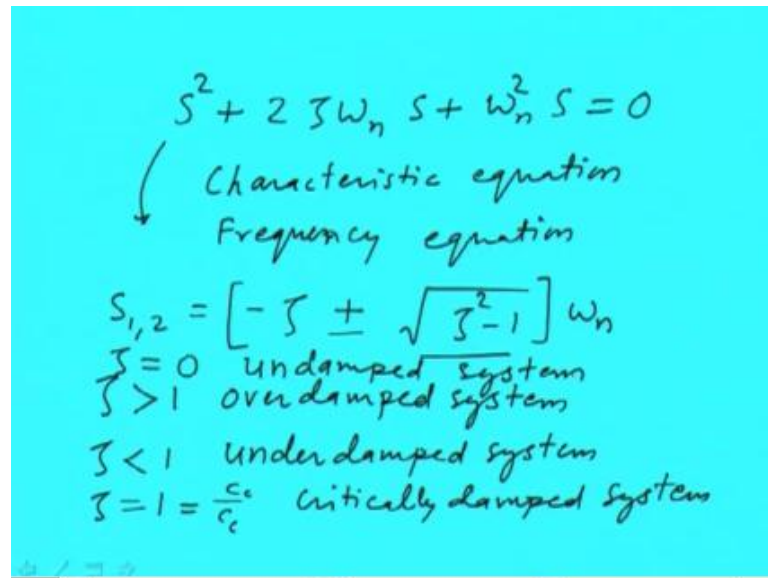 s² + 2 ζ ωₙ s + ωₙ² s = 0
Characteristic equation
Frequency equation
s₁,₂ = [- ζ ± √(ζ² - 1)] ωₙ
ζ = 0 undamped system
ζ > 1 overdamped system
ζ < 1 underdamped system
ζ = 1 = c_c/c_c critically damped system